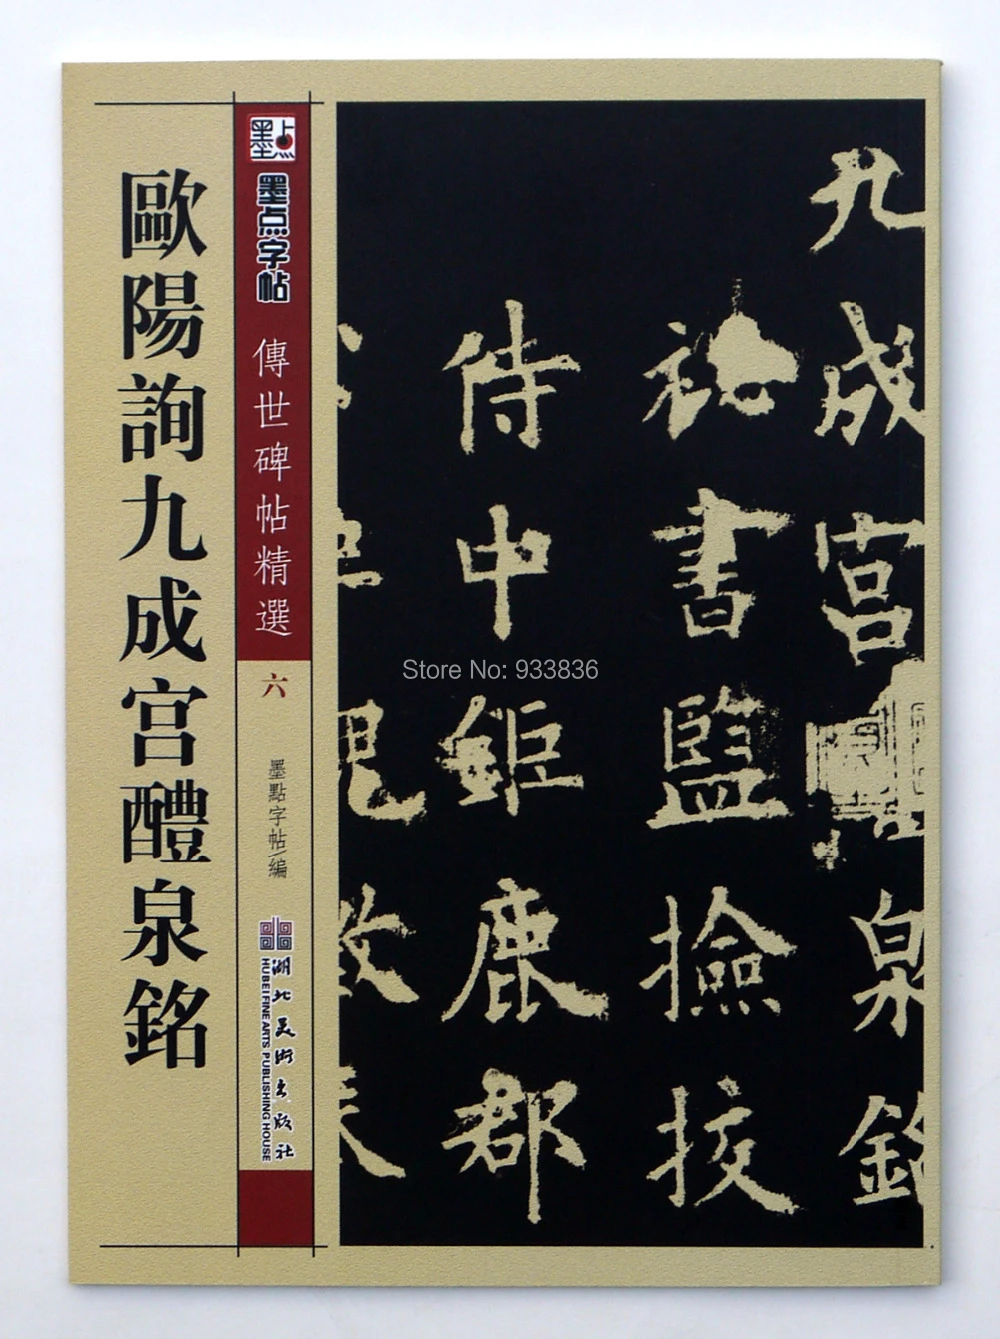 歐陽詢九成宫醴泉銘
墨点
墨点字帖
傳世碑帖精選
六
墨點字帖/編
湖北美術出版社
HUBEI FINE ARTS PUBLISHING HOUSE
九成宮泉銘
祕書監撿挍
侍中鉅鹿郡
Store No: 933836